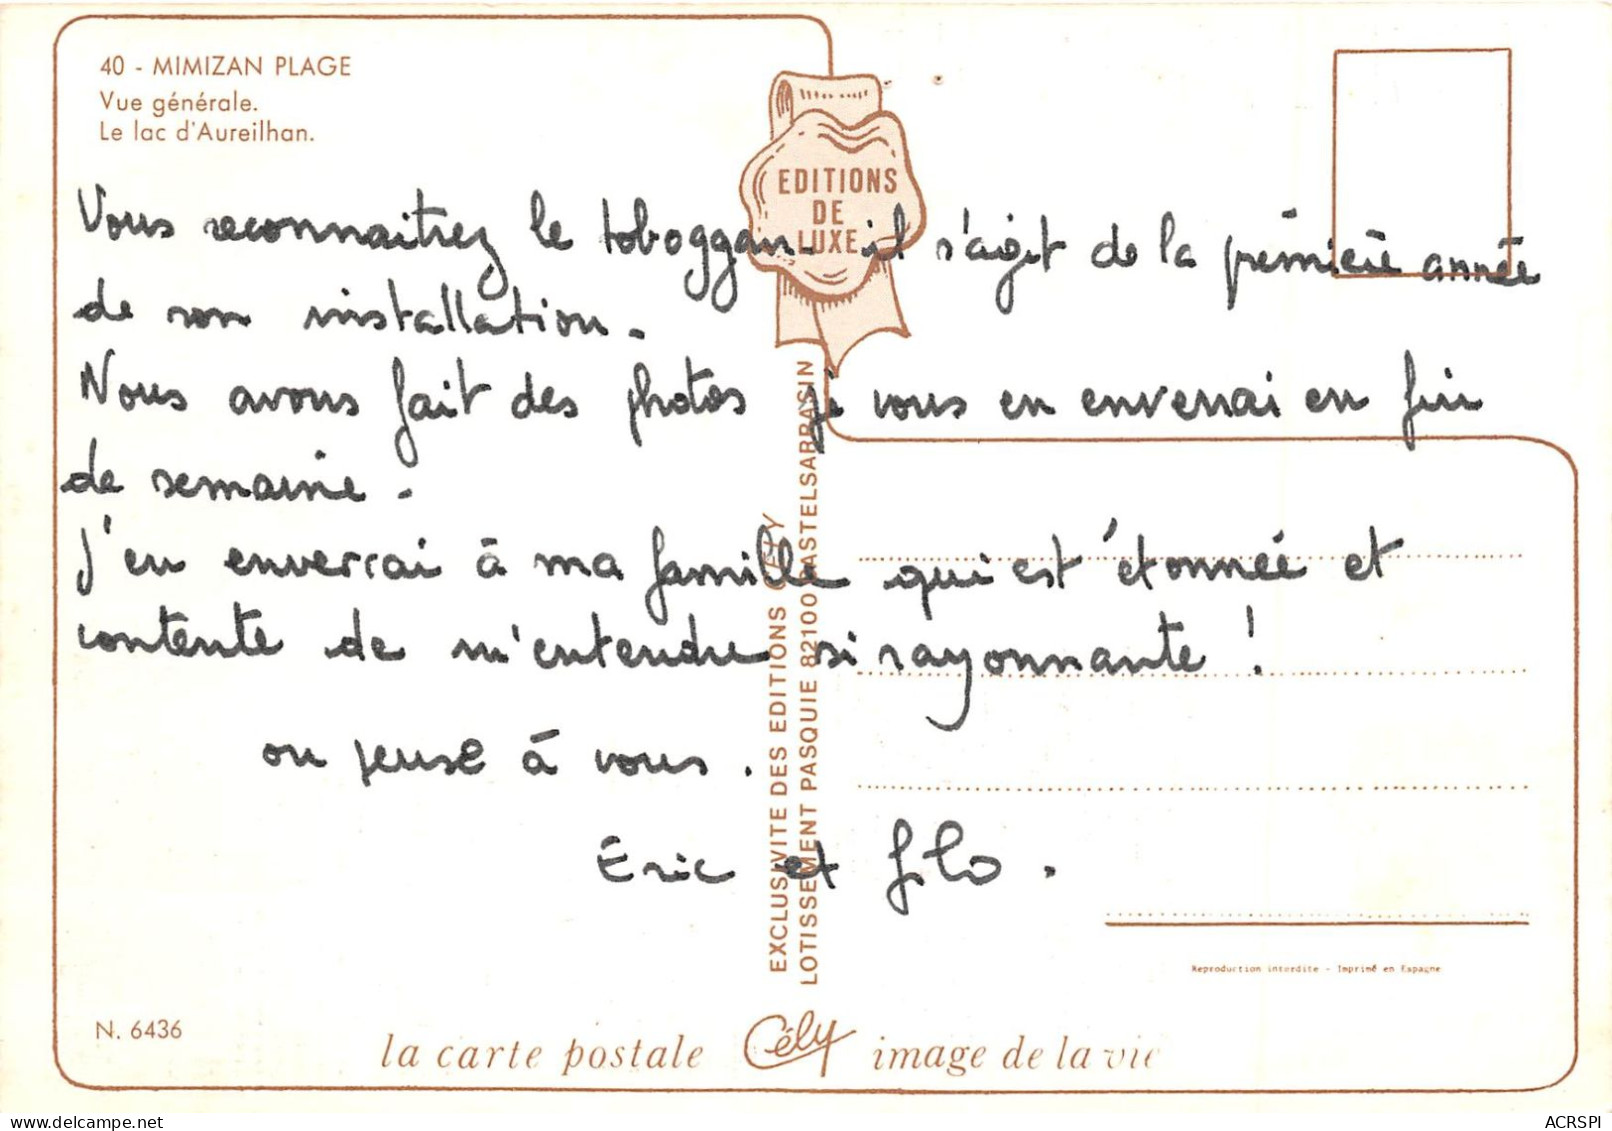 40 - MIMIZAN PLAGE
Vue générale.
Le lac d'Aureilhan.
EDITIONS
DE
LUXE
Vous reconnaitrez le toboggan. il s'agit de la première année
de son installation.
Nous avons fait des photos je vous en enverrai en fin
de semaine.
J'en enverrai à ma famille qui est étonnée et
contente de m'entendre si rayonnante !
on pense à vous.
Eric et flo.
EXCLUSIVITE DES EDITIONS CELY
LOTISSEMENT PASQUIE 82100 CASTELSARRASIN
Reproduction interdite - Imprimé en Espagne
N. 6436
la carte postale Cély image de la vie
ACRSPI